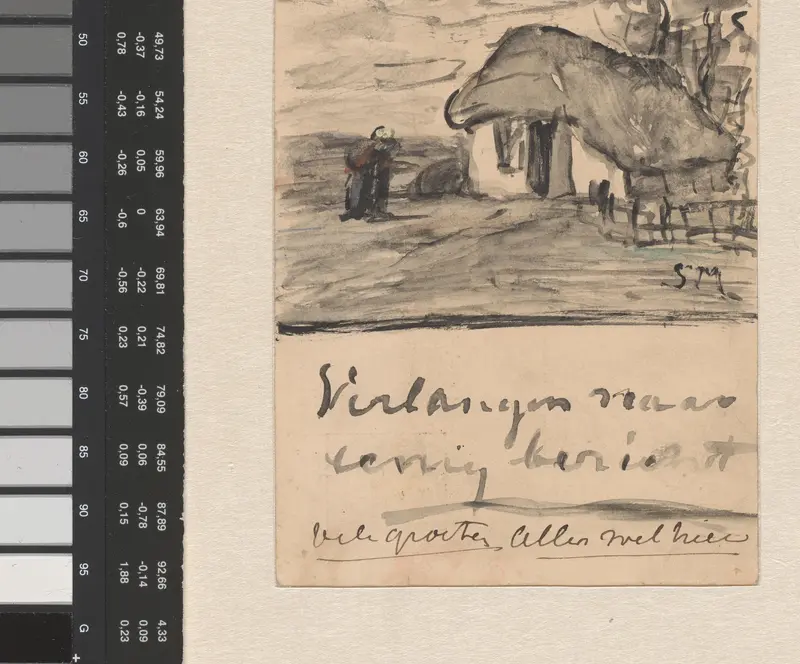 50 0,78 -0,37 49,73
55 -0,43 -0,16 54,24
60 -0,26 0,05 59,96
65 -0,6 0 63,94
70 -0,56 -0,22 69,81
75 0,23 0,21 74,82
80 0,57 -0,39 79,09
85 0,09 0,06 84,55
90 0,15 -0,78 87,89
95 1,88 -0,14 92,66
G 0,23 0,09 4,33
SM
Verlangen naar
eenig bericht
Vele groeten, Alles wel hier